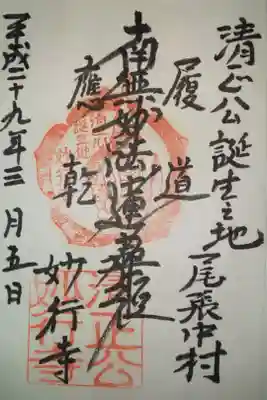 清正公誕生之地 尾張中村
履道
南無妙法蓮華経
應乾
妙行寺
平成二十九年三月五日
清正公
妙行寺